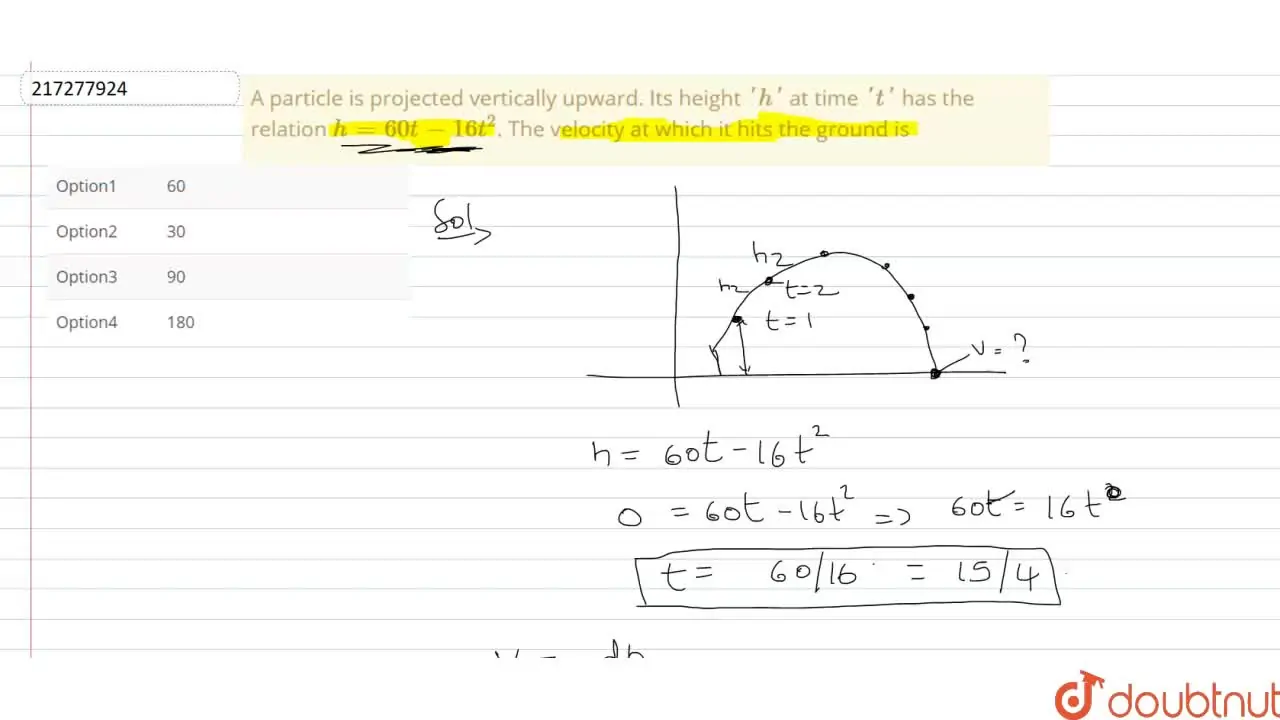 217277924
A particle is projected vertically upward. Its height 'h' at time 't' has the
relation h = 60t − 16t². The velocity at which it hits the ground is
Option1 60
Option2 30
Option3 90
Option4 180
Sol
h2
h2
t=2
t=1
V=?
h= 60t-16t²
0 = 60t-16t² => 60t = 16t²
t= 60/16 = 15/4
V = dh
doubtnut